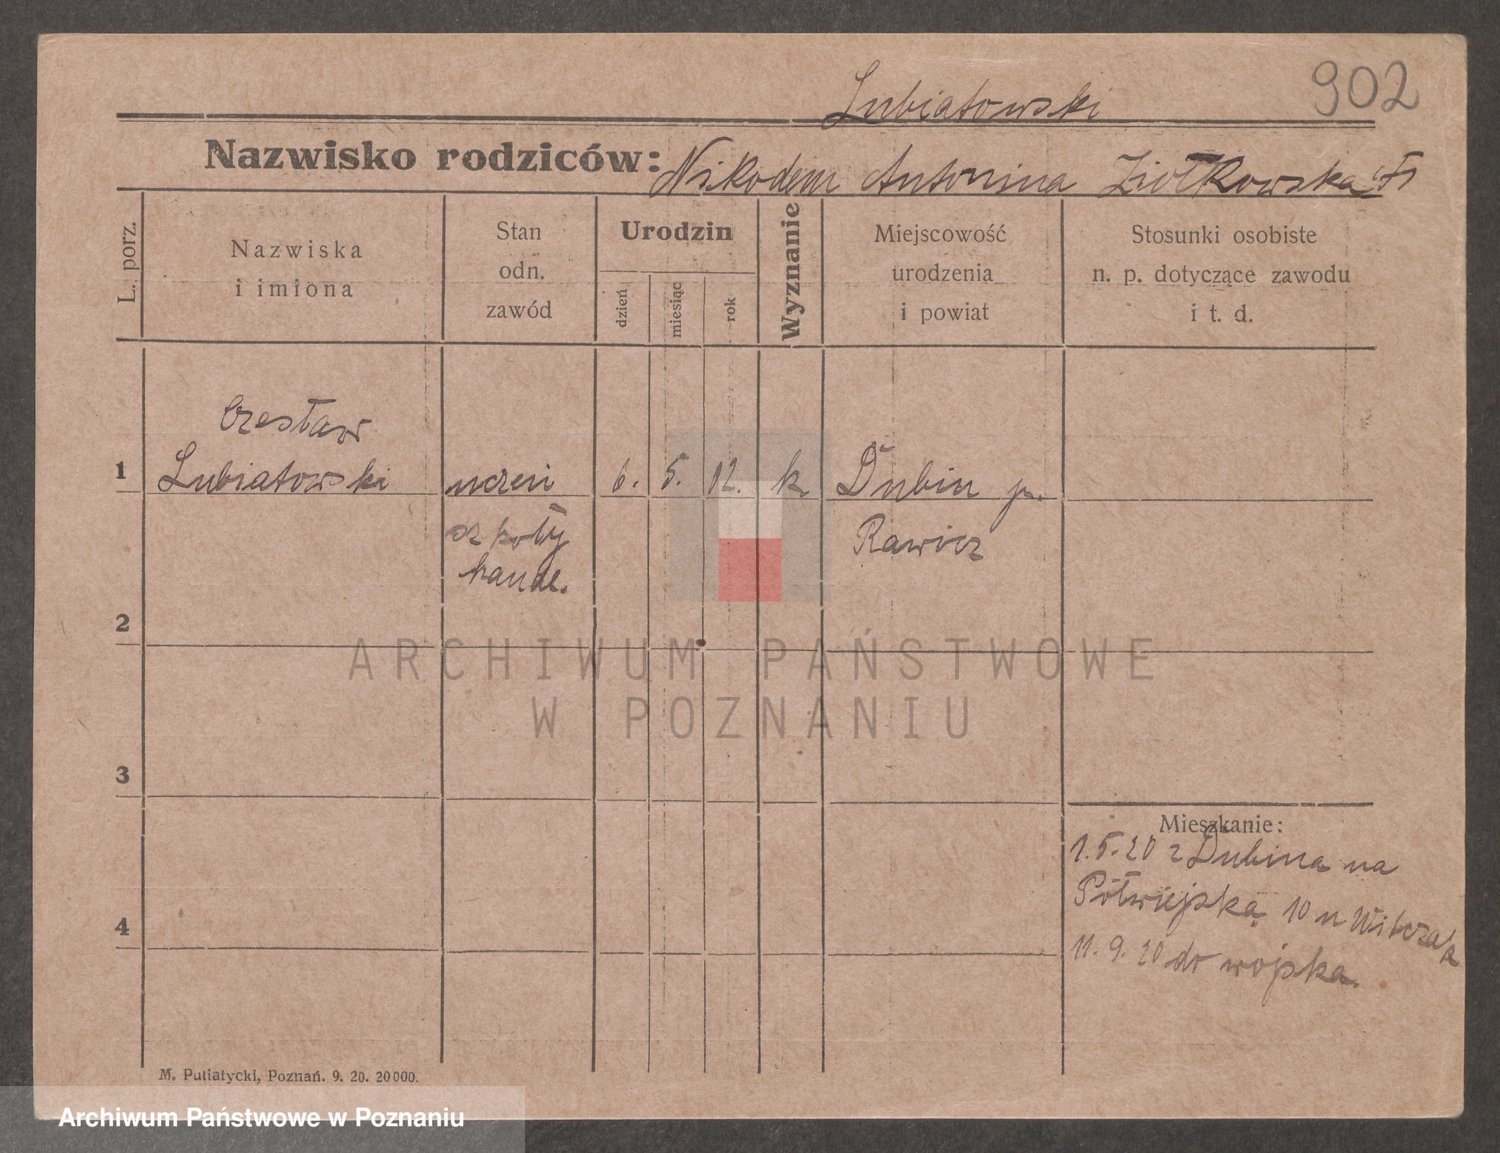 902
Lubiatowski
Nazwisko rodziców: Nikodem Antonina Ziółkowska
L. porz.
Nazwiska
i imiona
Stan
odn.
zawód
Urodzin
dzień
miesiąc
rok
Wyznanie
Miejscowość
urodzenia
i powiat
Stosunki osobiste
n. p. dotyczące zawodu
i t. d.
Czesław
1 Lubiatowski uczeń 6. 5. 02. k. Dubin p.
szkoły Rawicz
handl.
2
ARCHIWUM PAŃSTWOWE
W POZNANIU
3
Mieszkanie:
1.5.20 z Dubina na
Półwiejską 10 u Witczak
4
11.9.20 do wojska.
M. Putiatycki, Poznań. 9. 20. 20000.
Archiwum Państwowe w Poznaniu